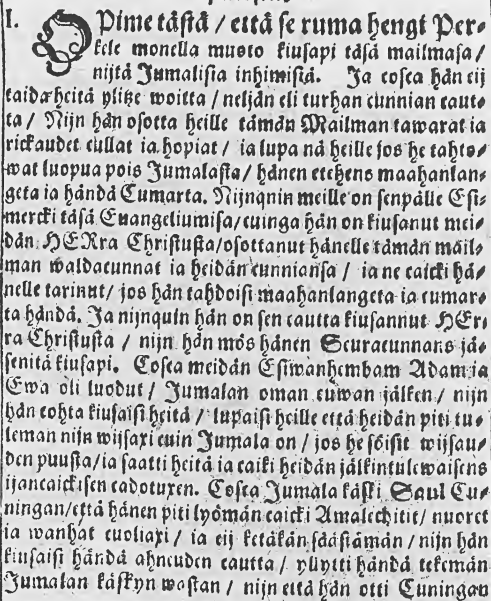 I. OPime tästä / että se ruma hengi Per⸗
kele monella muoto kiusapi täsä mailmasa /
nijtä Jumalisia inhimisiä. Ja cosca hän eij
taida heitä ylitze woitta / neljän eli turhan cunnian cautt⸗
ta / Nijn hän osotta heille tämän Mailman tawarat ia
rickaudet cullat ia hopiat / ia lupa nä heille jos he tahto⸗
wat luopua pois Jumalasta / hänen etehens maahanlan⸗
geta ia händä Cumarta. Nijnqnin meille on senpälle Esi⸗
mercki täsä Euangeliumisa / cuinga hän on kiusanut mei⸗
dän HERra Christusta / osottanut hänelle tämän mäil⸗
man waldacunnat ia heidän cunniansa / ia ne caicki hä⸗
nelle tarinut / jos hän tahdoisi maahanlangeta ia cumar⸗
ta händä. Ja nijnquin hän on sen cautta kiusannut HEr⸗
ra Christusta / nijn hän mös hänen Seuracunnans jä⸗
senitä kiusapi. Cosca meidän Esiwanhembam Adam ia
Ewa oli luodut / Jumalan oman cuwan jälken / nijn
hän cohta kiusaisi heitä / lupaisi heille että heidän piti tu⸗
leman nijn wijsaxi cuin Jumala on / jos he söisit wijsau⸗
den puusta / ia saatti heitä ia caiki heidän jälkintulewaisens
ijancaickisen cadotuxen. Cosca Jumala käski Saul Cu⸗
ningan / että hänen piti lyömän caicki Amalechitit / nuoret
ia wanhat cuoliaxi / ia eij ketäkän säästämän / nijn hän
kiusaisi händä ahneuden cautta / yllytti händä tekemän
Jumalan käskyn wastan / nijn että hän otti Cuningan